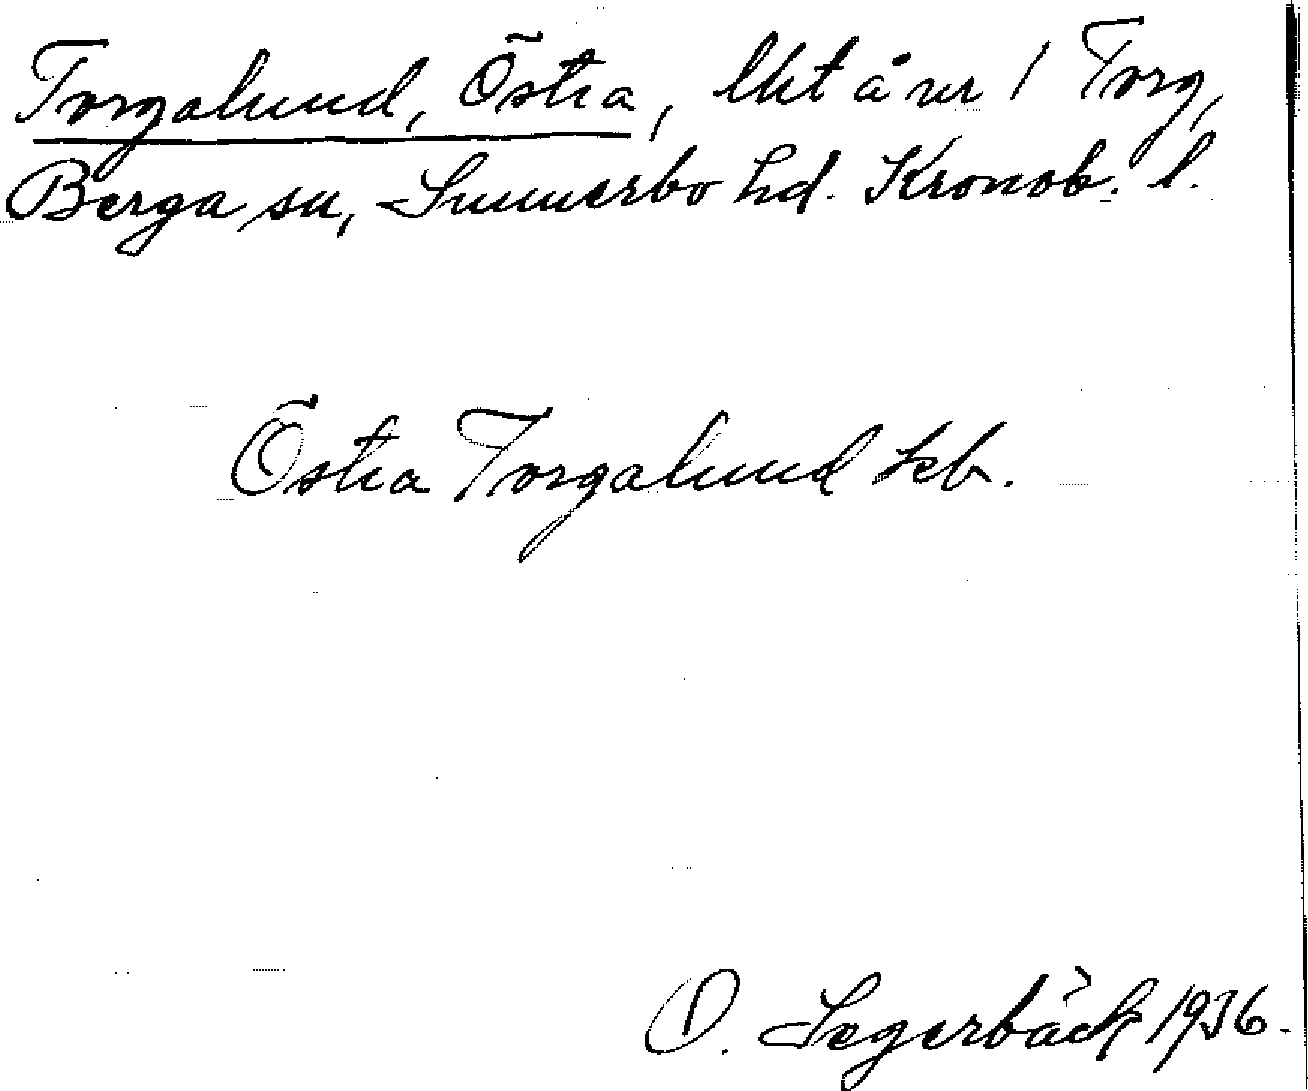 Torgalund, Östra, lht å nr 1 Torg,
Berga sn, Sunnerbo hd. Kronob. l.
Östra Torgalund kb.
O. Segerbäck 1936.